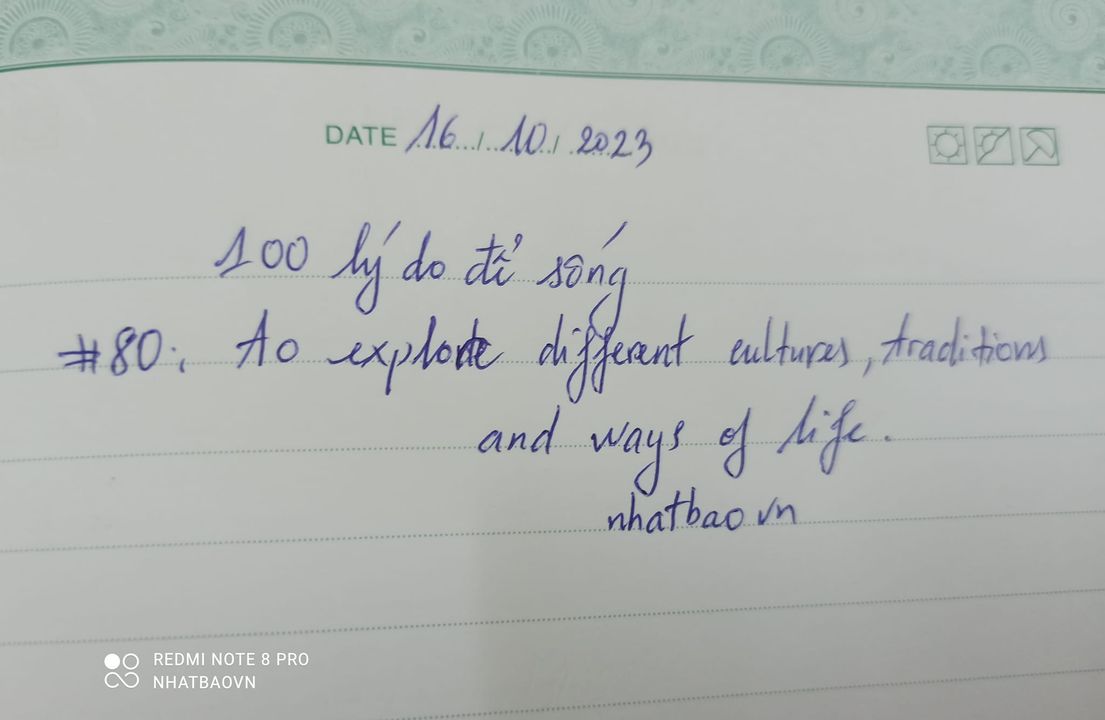 DATE 16 / 10 / 2023
100 lý do để sống
#80: To explore different cultures, traditions
and ways of life.
nhatbaovn
REDMI NOTE 8 PRO
NHATBAOVN